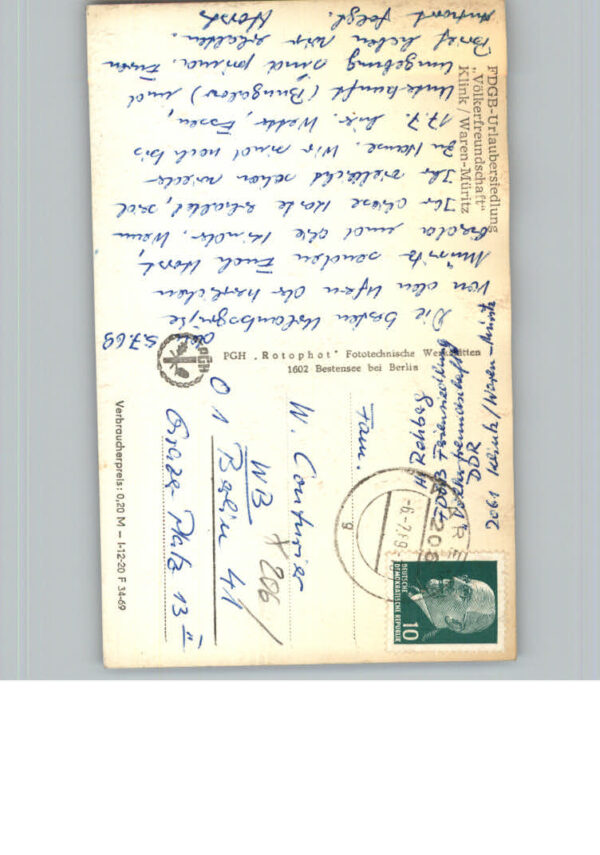 FDGB-Urlaubersiedlung
„Völkerfreundschaft“
Klink / Waren-Müritz
den
5.7.69
Die besten Urlaubsgrüße
von den Ufern der herrlichen
Müritz senden Euch Horst,
und die Kinder. Wenn
Ihr diese Karte erhaltet, seid
Ihr vielleicht schon wieder
zu Hause. Wir sind noch bis
17.7. hier. Wetter, Essen,
Unterkunft (Bungalow) und
Umgebung sind prima. Euren
Brief haben wir erhalten.
Antwort folgt.
Horst
PGH
PGH „Rotophot“ Fototechnische Werkstätten
1602 Bestensee bei Berlin
H. Rehberg
FDGB Feriensiedlung
"Völkerfreundschaft"
DDR
2061 Klink/Waren-Müritz
Fam.
W. Couturier
WB
206
O 1 Berlin 41
Grazer Platz 13 II
-6.7.69
206
g
DEUTSCHE
DEMOKRATISCHE REPUBLIK
10
Verbraucherpreis: 0,20 M — I-12-20 F 34-69